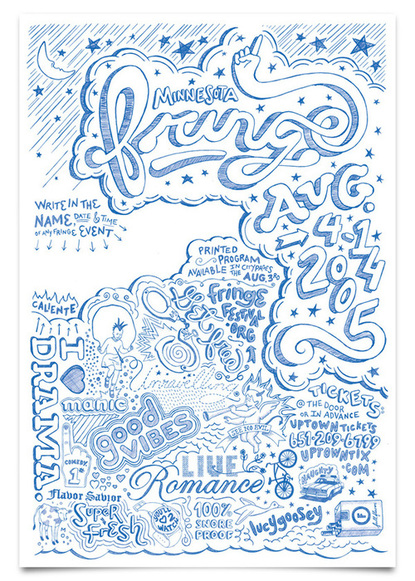 MINNESOTA
fringe
AUG.
4-14
2005
WRITE IN THE
NAME, DATE & TIME
OF ANY FRINGE EVENT
PRINTED
PROGRAM
AVAILABLE IN CITYPAGES
THE AUG. 3RD
fringe
FESTIVAL
.ORG
CALIENTE
I
DRAMA.
manic
good
VIBES
COMEDY
1
Flavor Savior
Super
fresh
LIVE
Romance
100%
SNORE
PROOF
TICKETS
@ THE DOOR
OR IN ADVANCE
UPTOWN TICKETS
651-209-6799
UPTOWNTIX
.COM
NAUGHTY
lucygoosey